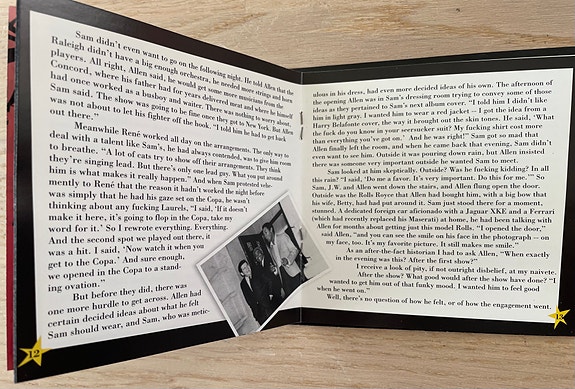 Sam didn't even want to go on the following night. He told Allen that the
Raleigh didn't have a big enough orchestra, he needed more strings and horn
players. All right, Allen said, he would get some more musicians from the
Concord, where his father had for years delivered meat and where he himself
had once worked as a busboy and waiter. There was nothing to worry about,
Sam said. The show was going to be fine once they got to New York. But Allen
was not about to let his fighter off the hook. "I told him he had to get back
out there."
Meanwhile René worked all day on the arrangements. The only way to
deal with a talent like Sam's, he had always contended, was to give him room
to breathe. "A lot of cats try to show off their arrangements. They think
they're singing lead. But there's only one lead guy. What you put around
him is what makes it really happen." And when Sam protested vehe-
mently to René that the reason it hadn't worked the night before
was simply that he had his gaze set on the Copa, he wasn't
thinking about any fucking Laurels, "I said, 'If it doesn't
make it here, it's going to flop in the Copa, take my
word for it.' So I rewrote everything. Everything.
And the second spot we played out there, it
was a hit. I said, 'Now watch it when you
get to the Copa.' And sure enough,
we opened in the Copa to a stand-
ing ovation."
But before they did, there was
one more hurdle to get across. Allen had
certain decided ideas about what he felt
Sam should wear, and Sam, who was metic-
12
ulous in his dress, had even more decided ideas of his own. The afternoon of
the opening Allen was in Sam's dressing room trying to convey some of those
ideas as they pertained to Sam's next album cover. "I told him I didn't like
him in light gray. I wanted him to wear a red jacket – I got the idea from a
Harry Belafonte cover, the way it brought out the skin tones. He said, 'What
the fuck do you know in your seersucker suit? My fucking shirt cost more
than everything you've got on.' And he was right!" Sam got so mad that
Allen finally left the room, and when he came back that evening, Sam didn't
even want to see him. Outside it was pouring down rain, but Allen insisted
there was someone very important outside he wanted Sam to meet.
Sam looked at him skeptically. Outside? Was he fucking kidding? In all
this rain? "I said, 'Do me a favor. It's very important. Do this for me.'" So
Sam, J.W. and Allen went down the stairs, and Allen flung open the door.
Outside was the Rolls Royce that Allen had bought him, with a big bow that
his wife, Betty, had had put around it. Sam just stood there for a moment,
stunned. A dedicated foreign car aficionado with a Jaguar XKE and a Ferrari
(which had recently replaced his Maserati) at home, he had been talking with
Allen for months about getting just this model Rolls. "I opened the door,"
said Allen, "and you can see the smile on his face in the photograph – on
my face, too. It's my favorite picture. It still makes me smile."
As an after-the-fact historian I had to ask Allen, "When exactly
in the evening was this? After the first show?"
I receive a look of pity, if not outright disbelief, at my naivete.
After the show? What good would after the show have done? "I
wanted to get him out of that funky mood. I wanted him to feel good
when he went on."
Well, there's no question of how he felt, or of how the engagement went.
13